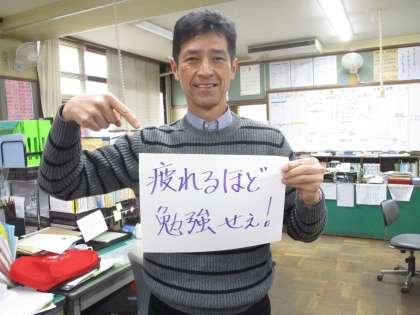 疲れるほど
勉強せぇ!